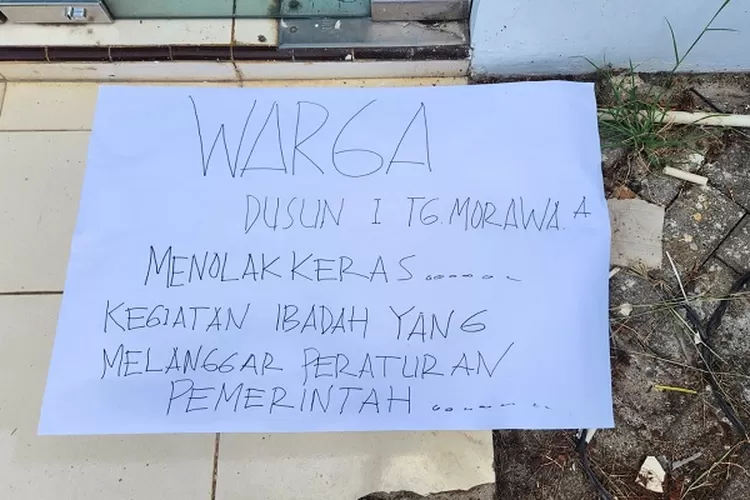 WARGA
DUSUN I TG. MORAWA. A
MENOLAK KERAS.......
KEGIATAN IBADAH YANG
MELANGGAR PERATURAN
PEMERINTAH ........